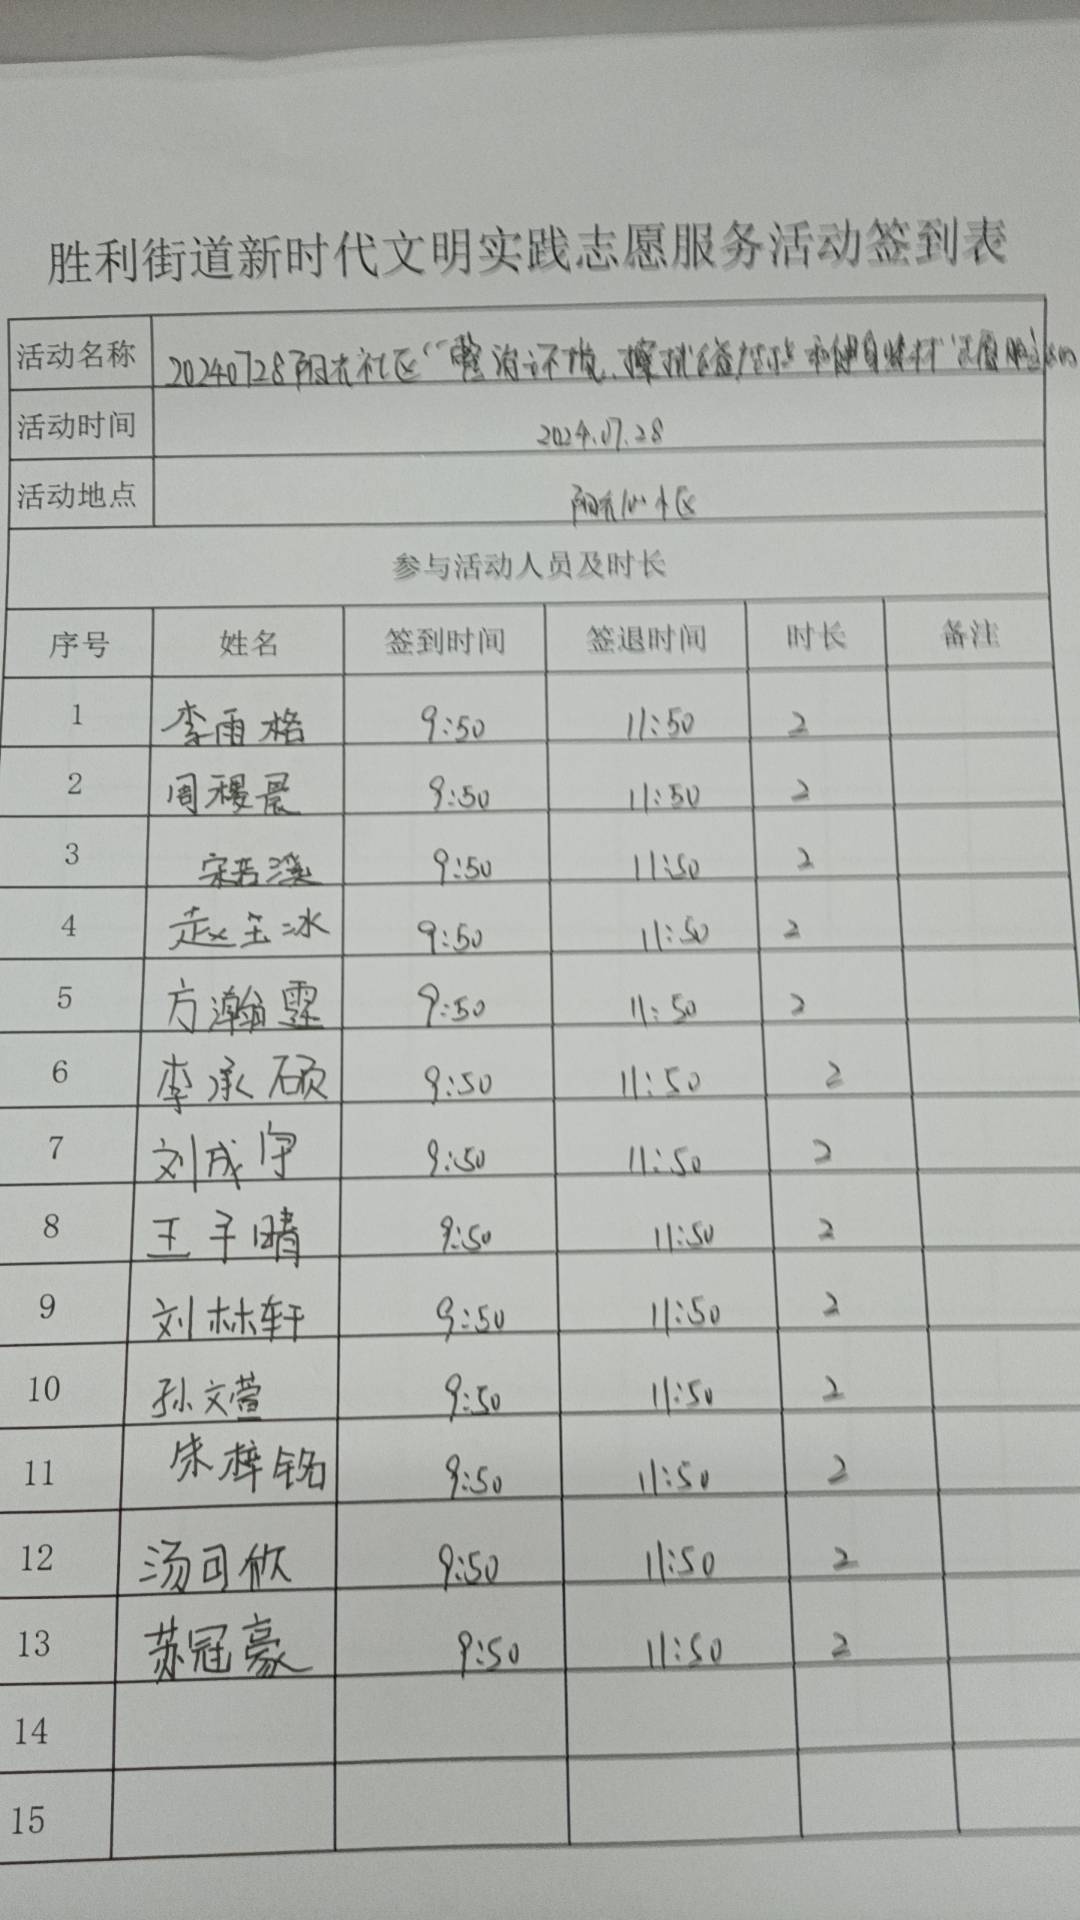 胜利街道新时代文明实践志愿服务活动签到表
活动名称 20240728阳光社区“整治环境、擦拭 和健身器材”志愿服务活动
活动时间 2024.07.28
活动地点 阳光 小区
参与活动人员及时长
序号 姓名 签到时间 签退时间 时长 备注
1 李雨格 9:50 11:50 2
2 周稷晨 9:50 11:50 2
3 宋若溪 9:50 11:50 2
4 赵玉冰 9:50 11:50 2
5 方瀚霆 9:50 11:50 2
6 李承硕 9:50 11:50 2
7 刘成宇 9:50 11:50 2
8 王子晴 9:50 11:50 2
9 刘林轩 9:50 11:50 2
10 孙文萱 9:50 11:50 2
11 朱梓铭 9:50 11:50 2
12 汤可欣 9:50 11:50 2
13 苏冠豪 9:50 11:50 2
14
15